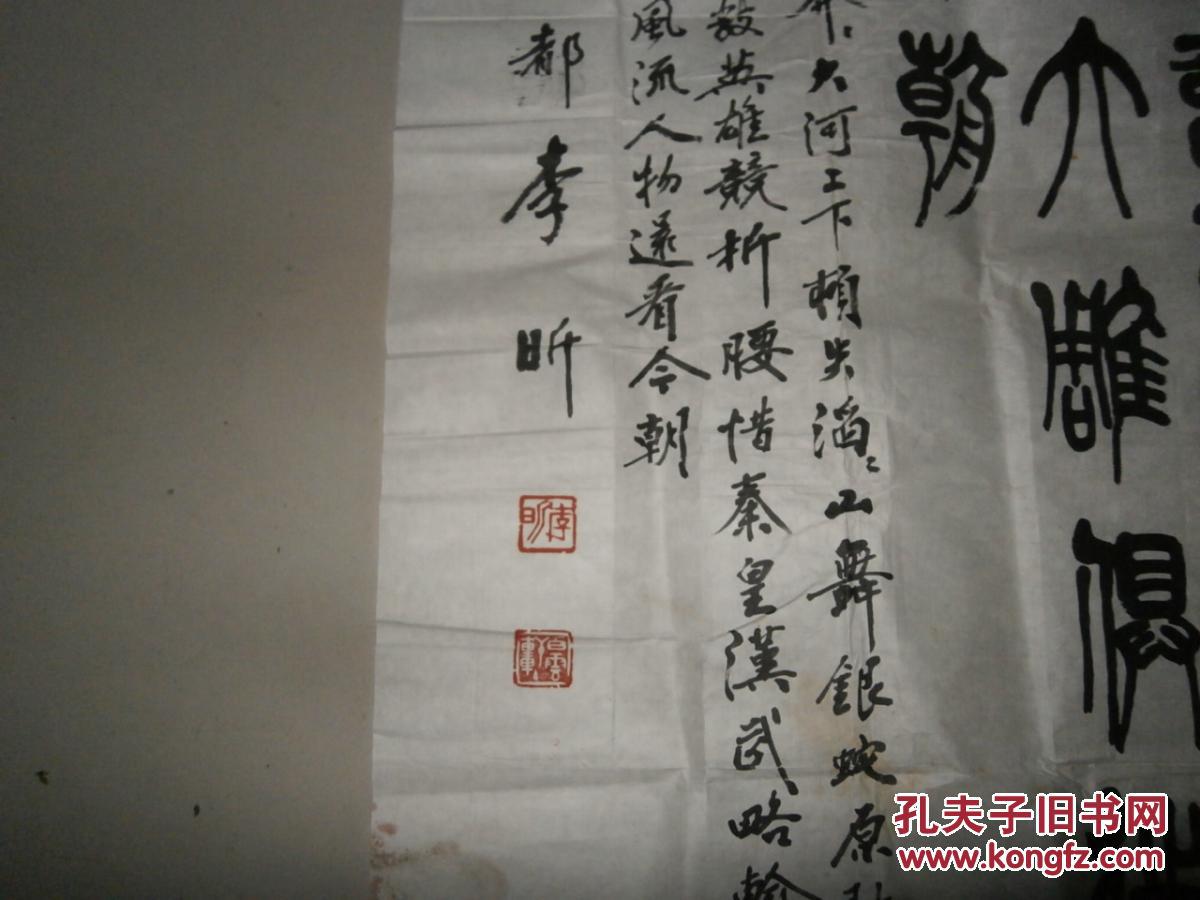 大雅俱
朝
大河上下頓失滔〻山舞銀蛇原
數英雄競折腰惜秦皇漢武略輸
風流人物還看今朝
都李昕
李昕
白雲軒
孔夫子旧书网
www.kongfz.com